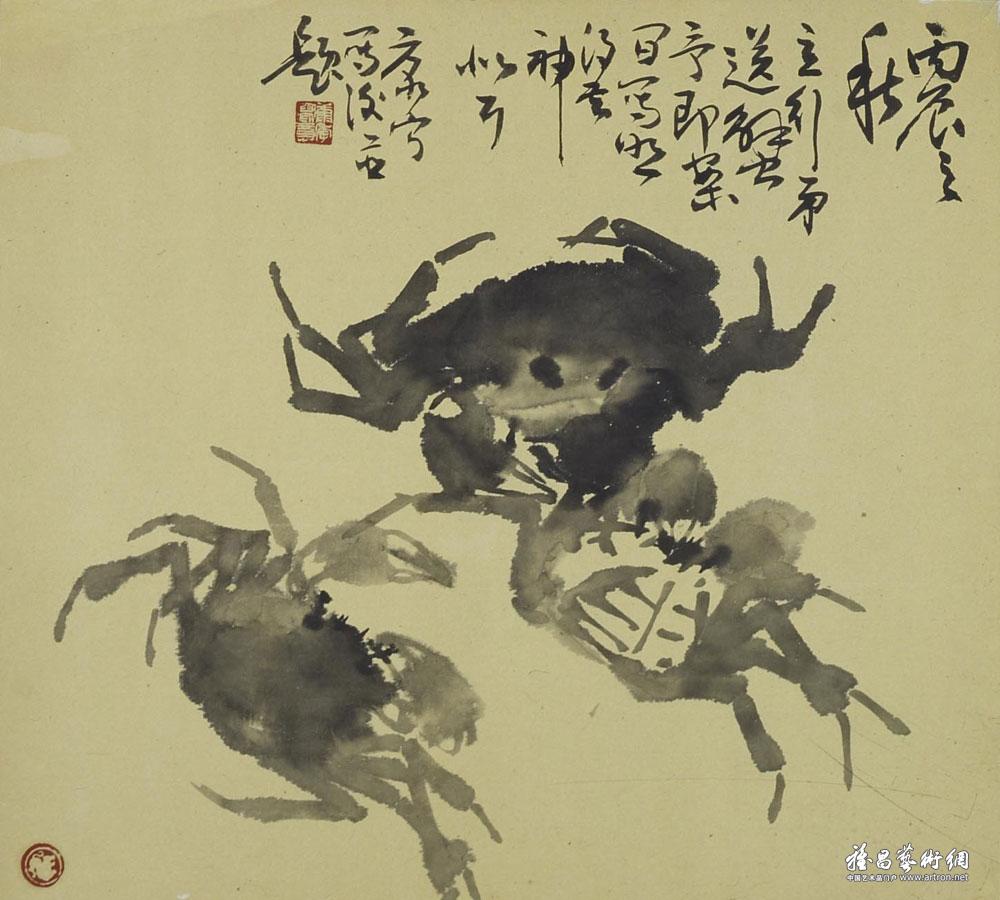 丙辰之
秋
立 弟
送蟹
予即案
間寫照
得其
神
似耳
康寧
寫後
題
雅昌藝術網
中国艺术品门户 www.artron.net